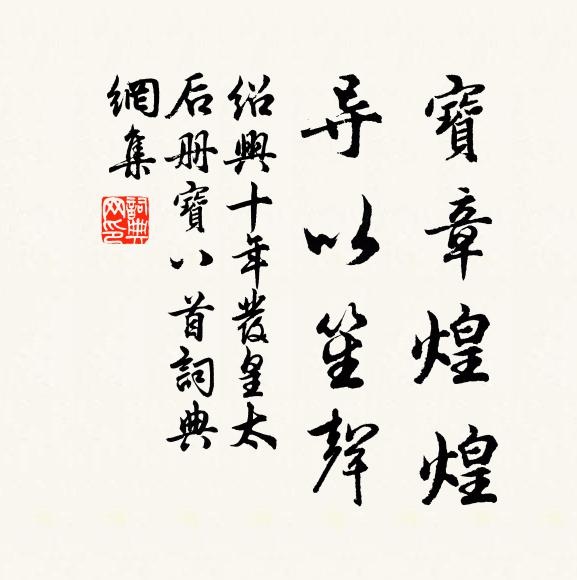 寶章煌煌
导以笙聲
绍興十年發皇太
后册寶八首詞典
網集
詞典网印